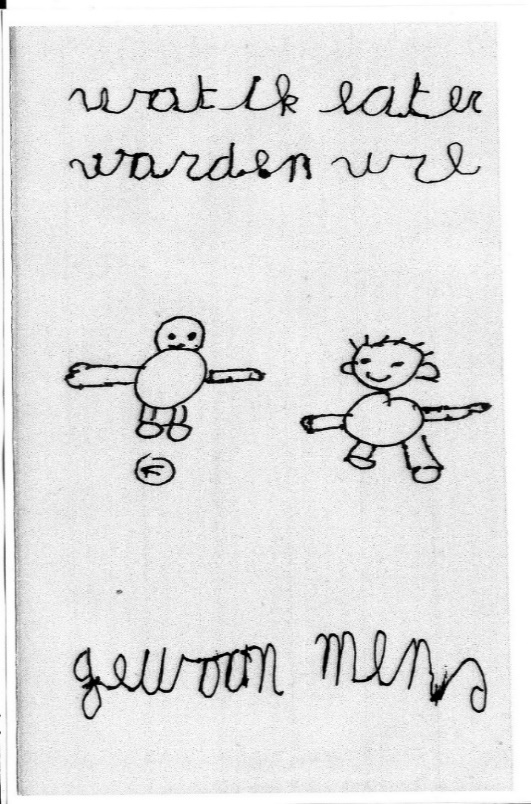 wat ik later
worden wil
gewoon mens